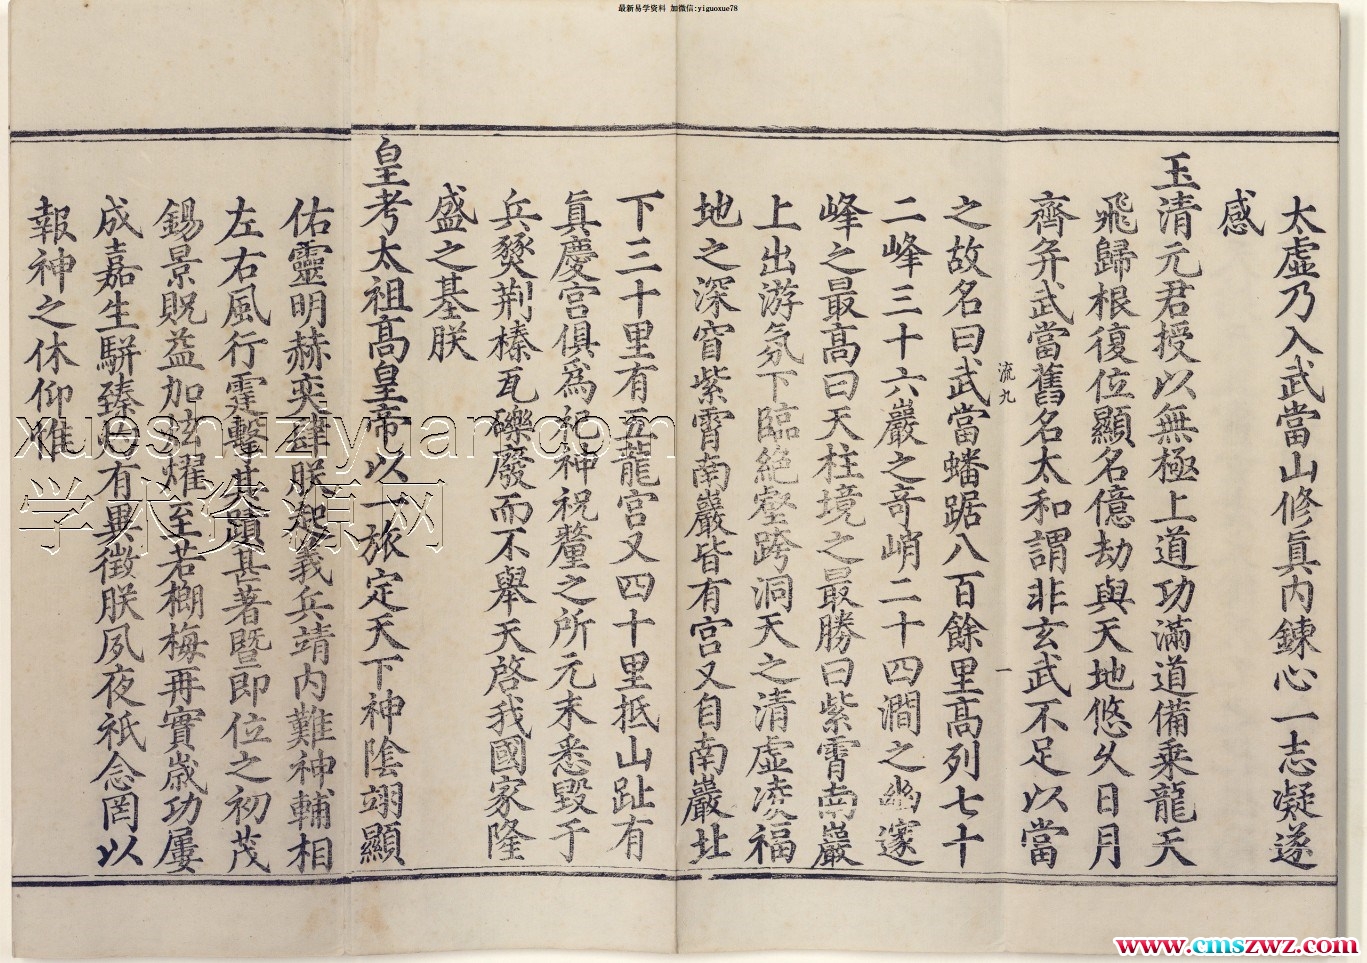 最新易学资料 加微信:yiguoxue78
太虛乃入武當山修眞内鍊心一志凝遂
感
玉清元君授以無極上道功滿道備乗龍天
飛歸根復位顯名億劫與天地悠久日月
齊并武當舊名太和謂非玄武不足以當
流九
一
之故名曰武當蟠踞八百餘里髙列七十
二峰三十六巖之竒峭二十四澗之幽邃
峰之最髙曰天柱境之最勝曰紫霄南巖
上出游氛下臨絶壑跨洞天之清虛凌福
地之深窅紫霄南巖皆有宫又自南巖北
下三十里有五龍宫又四十里抵山趾有
眞慶宫俱爲祀神祝釐之所元末悉毀于
兵燹荆榛瓦礫廢而不舉天啓我國家隆
盛之基朕
皇考太祖髙皇帝以一旅定天下神隂翊顯
佑靈明赫奕肆朕起義兵靖内難神輔相
左右風行霆擊其蹟甚著暨即位之初茂
錫景貺益加炫燿至若榔梅再實嵗功屢
成嘉生駢臻灼有異徵朕夙夜祗念罔以
報神之休仰惟
xueshuziyuan.com
学术资源网
www.cmszwz.com